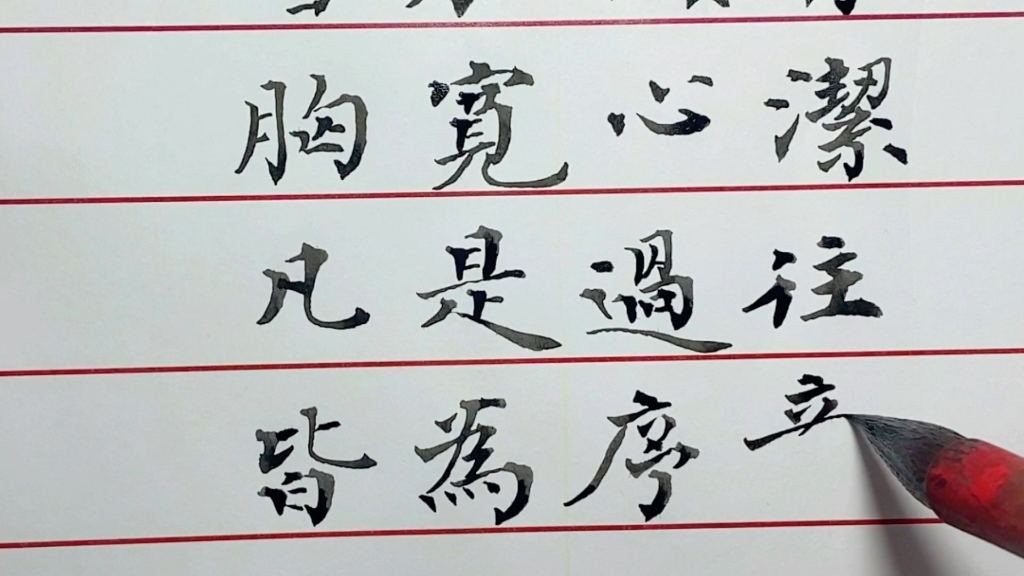 胸寬心潔
凡是過往
皆為序立